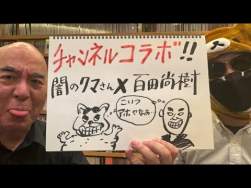 チャンネルコラボ!!
闇のクマさん×百田尚樹
こいつ
アホやなあ